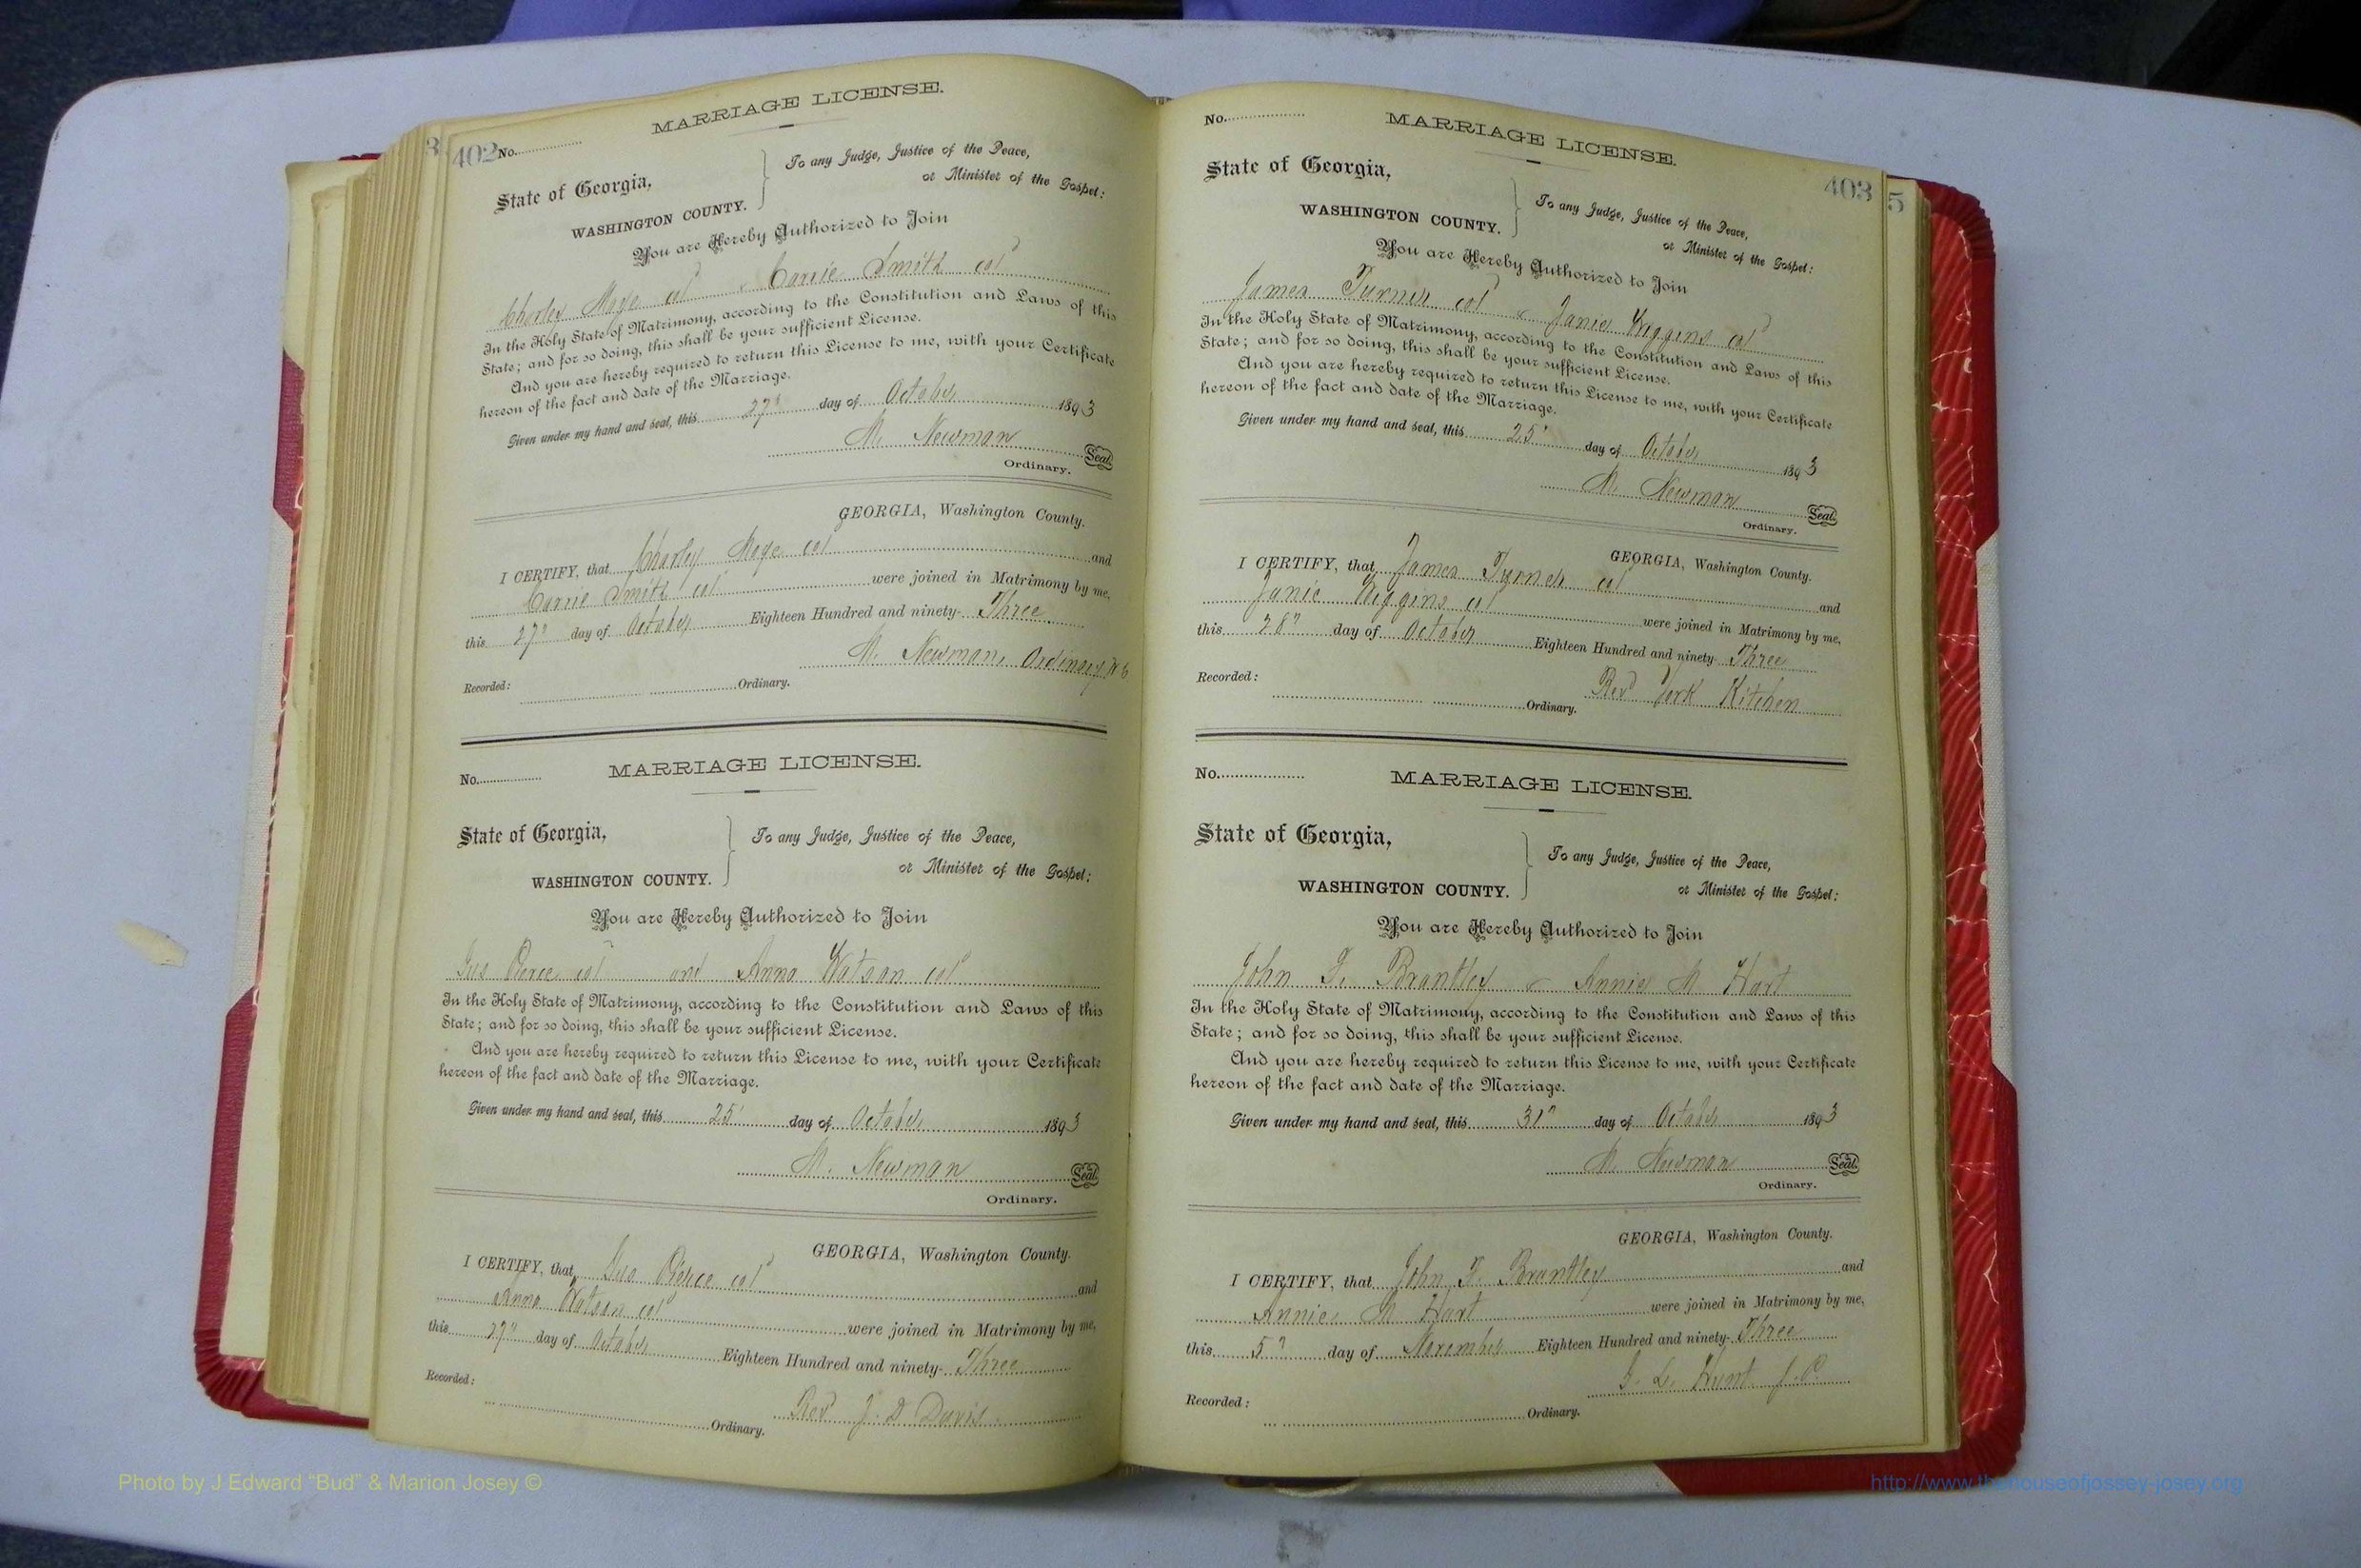 3
402 No.
MARRIAGE LICENSE.
State of Georgia,
WASHINGTON COUNTY.
To any Judge, Justice of the Peace,
or Minister of the Gospel:
You are Hereby Authorized to Join
Charley Moye col & Carrie Smith col
In the Holy State of Matrimony, according to the Constitution and Laws of this
State; and for so doing, this shall be your sufficient License.
And you are hereby required to return this License to me, with your Certificate
hereon of the fact and date of the Marriage.
Given under my hand and seal, this 27" day of October 1893
M. Newman Seal.
Ordinary.
GEORGIA, Washington County.
I CERTIFY, that Charley Moye col and
Carrie Smith col were joined in Matrimony by me,
this 27" day of October Eighteen Hundred and ninety- Three
M. Newman, Ordinary
Recorded: Ordinary.
No.
MARRIAGE LICENSE.
State of Georgia,
WASHINGTON COUNTY.
To any Judge, Justice of the Peace,
or Minister of the Gospel:
You are Hereby Authorized to Join
Gus Pierce col and Anna Watson col
In the Holy State of Matrimony, according to the Constitution and Laws of this
State; and for so doing, this shall be your sufficient License.
And you are hereby required to return this License to me, with your Certificate
hereon of the fact and date of the Marriage.
Given under my hand and seal, this 25" day of October 1893
M. Newman Seal.
Ordinary.
GEORGIA, Washington County.
I CERTIFY, that Gus Pierce col and
Anna Watson col were joined in Matrimony by me,
this 27" day of October Eighteen Hundred and ninety- Three
Rev. J. D Davis
Recorded: Ordinary.
No.
MARRIAGE LICENSE.
403
5
State of Georgia,
WASHINGTON COUNTY.
To any Judge, Justice of the Peace,
or Minister of the Gospel:
You are Hereby Authorized to Join
James Turner col & Janie Wiggins col
In the Holy State of Matrimony, according to the Constitution and Laws of this
State; and for so doing, this shall be your sufficient License.
And you are hereby required to return this License to me, with your Certificate
hereon of the fact and date of the Marriage.
Given under my hand and seal, this 25" day of October 1893
M. Newman Seal.
Ordinary.
GEORGIA, Washington County.
I CERTIFY, that James Turner col and
Janie Wiggins col were joined in Matrimony by me,
this 28" day of October Eighteen Hundred and ninety- Three
Rev York Kitchen
Recorded: Ordinary.
No.
MARRIAGE LICENSE.
State of Georgia,
WASHINGTON COUNTY.
To any Judge, Justice of the Peace,
or Minister of the Gospel:
You are Hereby Authorized to Join
John T. Brantley & Annie M. Hart
In the Holy State of Matrimony, according to the Constitution and Laws of this
State; and for so doing, this shall be your sufficient License.
And you are hereby required to return this License to me, with your Certificate
hereon of the fact and date of the Marriage.
Given under my hand and seal, this 31" day of October 1893
M. Newman Seal.
Ordinary.
GEORGIA, Washington County.
I CERTIFY, that John T. Brantley and
Annie M Hart were joined in Matrimony by me,
this 5" day of November Eighteen Hundred and ninety- Three
L. Hunt J.P.
Recorded: Ordinary.
Photo by J Edward "Bud" & Marion Josey ©
http://www.thehouseofjossey-josey.org